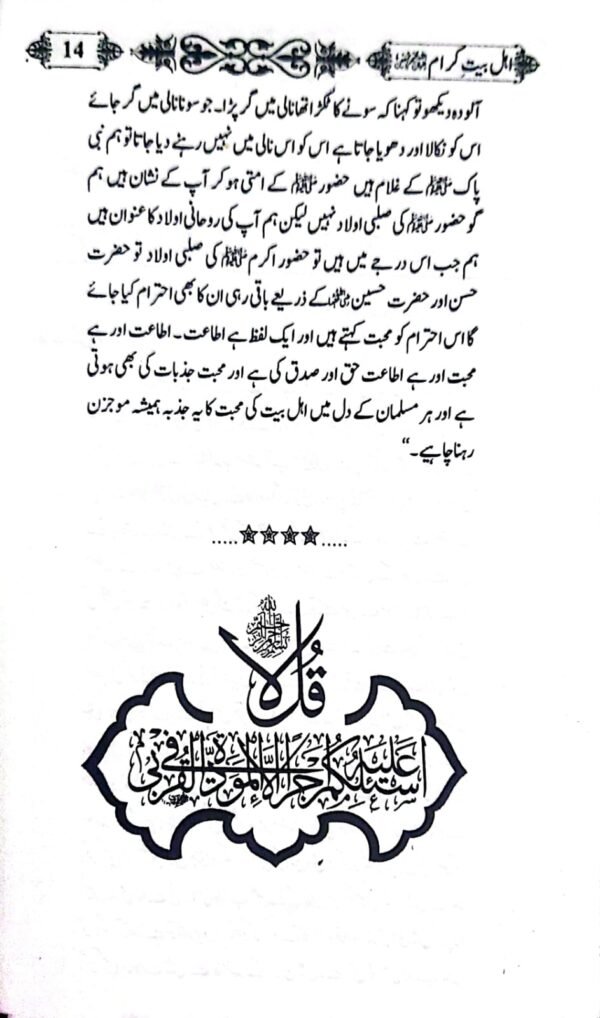 اہل بیتِ کرام
14
آلودہ دیکھو تو کہنا کہ سونے کا ٹکڑا تھا نالی میں گر پڑا۔ جو سونا نالی میں گر جائے
اس کو نکالا اور دھویا جاتا ہے اس کو اس نالی میں نہیں رہنے دیا جاتا تو ہم نبی
پاک ﷺ کے غلام ہیں حضور ﷺ کے امتی ہو کر آپ کے نشان ہیں ہم
گو حضور ﷺ کی صلبی اولاد نہیں لیکن ہم آپ کی روحانی اولاد کا عنوان ہیں
ہم جب اس درجے میں ہیں تو حضور اکرم ﷺ کی صلبی اولاد تو حضرت
حسن اور حضرت حسین کے ذریعے باقی رہی ان کا بھی احترام کیا جائے
گا اس احترام کو محبت کہتے ہیں اور ایک لفظ ہے اطاعت۔ اطاعت اور ہے
محبت اور ہے اطاعت حق اور صدق کی ہے اور محبت جذبات کی بھی ہوتی
ہے اور ہر مسلمان کے دل میں اہل بیت کی محبت کا یہ جذبہ ہمیشہ موجزن
رہنا چاہیے۔“
.....☆☆☆☆.....
قُل لَّا
اَسْئَلُكُمْ عَلَيْهِ اَجْرًا اِلَّا الْمَوَدَّةَ فِی الْقُرْبٰی